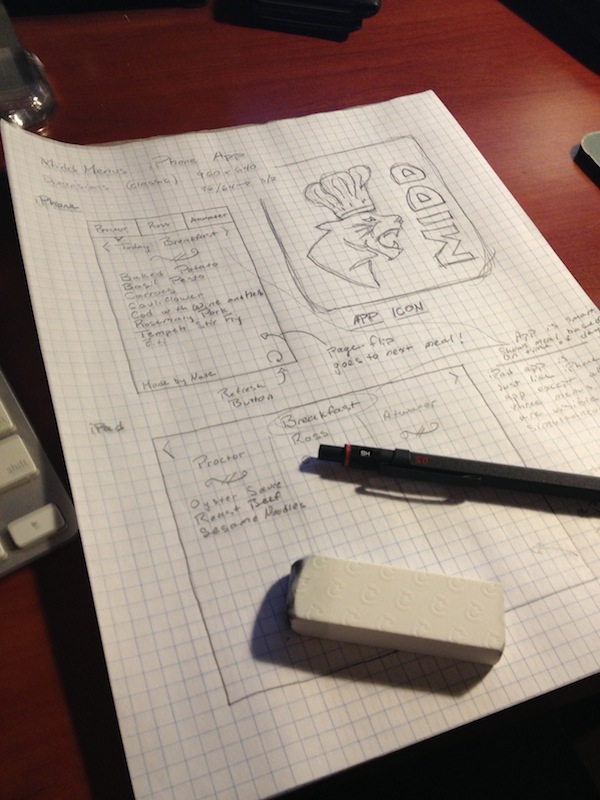 Midd Menus iPhone App
Dimensions (classic) 960 x 640
iPhone
Proctor Ross Atwater
< Today: Breakfast >
Baked Potato
Basil Pesto
Carrots
Cauliflower
Cod with Wine and Herbs
Rosemary Pork
Tempeh Stir Fry
Etc.
Made by Nate
MIDD
APP ICON
Page flip
goes to next meal!
Refresh
Button
App is smart
Shows meal based
on time of day
iPad app is
just like iPhone
app except all
three menus
are visible
simultaneously
iPad
< Breakfast >
Proctor Ross Atwater
Oyster Sauce
Roast Beef
Sesame Noodles